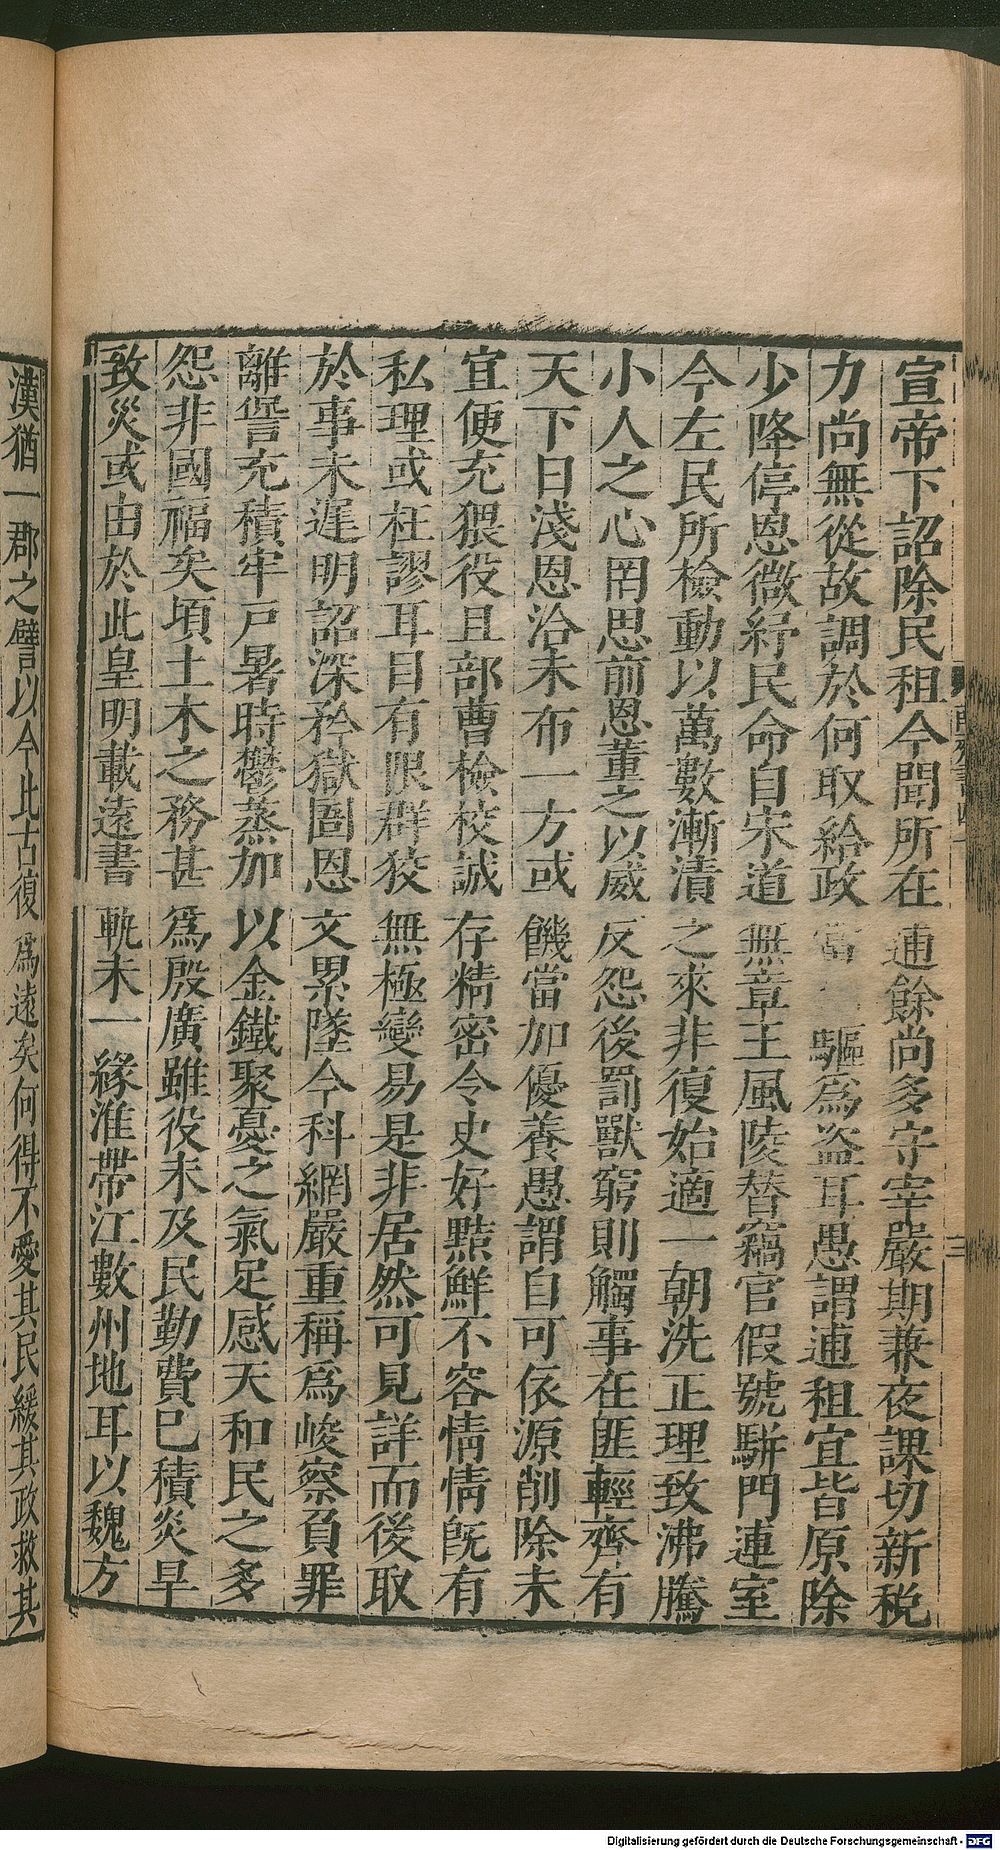 宣帝下詔除民租今聞所在逋餘尚多守宰嚴期兼夜課切新税
力尚無從故調於何取給政當驅爲盗耳愚謂逋租宜皆原除
少降停恩微紓民命自宋道無章王風陵替竊官假號駢門連室
今左民所檢動以萬數漸漬之來非復始適一朝洗正理致沸騰
小人之心罔思前恩董之以威反怨後罰獸窮則觸事在匪輕齊有
天下日淺恩洽未布一方或饑當加優養愚謂自可依源削除未
宜便充猥役且部曹檢校誠存精密令史好黠鮮不容情情既有
私理或枉謬耳目有限群狡無極變易是非居然可見詳而後取
於事未遲明詔深矜獄圄恩文累墜今科網嚴重稱爲峻察負罪
離諐充積牢戸暑時鬱蒸加以金鐵聚憂之氣足感天和民之多
怨非國福矣頃土木之務甚爲殷廣雖役未及民勤費已積炎旱
致災或由於此皇明載遠書軌未一緣淮帶江數州地耳以魏方
漢猶一郡之譬以今比古復爲遠矣何得不愛其民緩其政救其
Digitalisierung gefördert durch die Deutsche Forschungsgemeinschaft - DFG